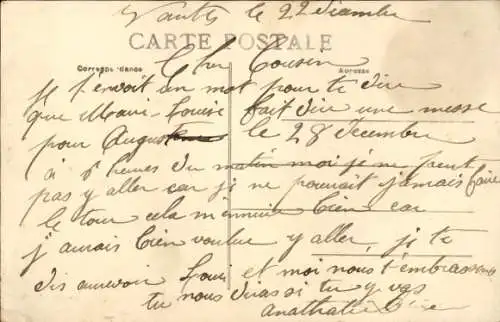 Nantes le 22 décembre
CARTE POSTALE
Correspondance
Adresse
Cher Cousin
Je t'envoit un mot pour te dire
que Marie-Louise fait dire une messe
pour Auguste le 28 décembre
à 8 heures du matin moi je ne peut
pas y aller car je ne pourrait jamais faire
le tour cela m'ennuie bien car
j'aurais bien voulue y aller, je te
dis aurevoir Louis et moi nous t'embrassons
tu nous diras si tu y vas